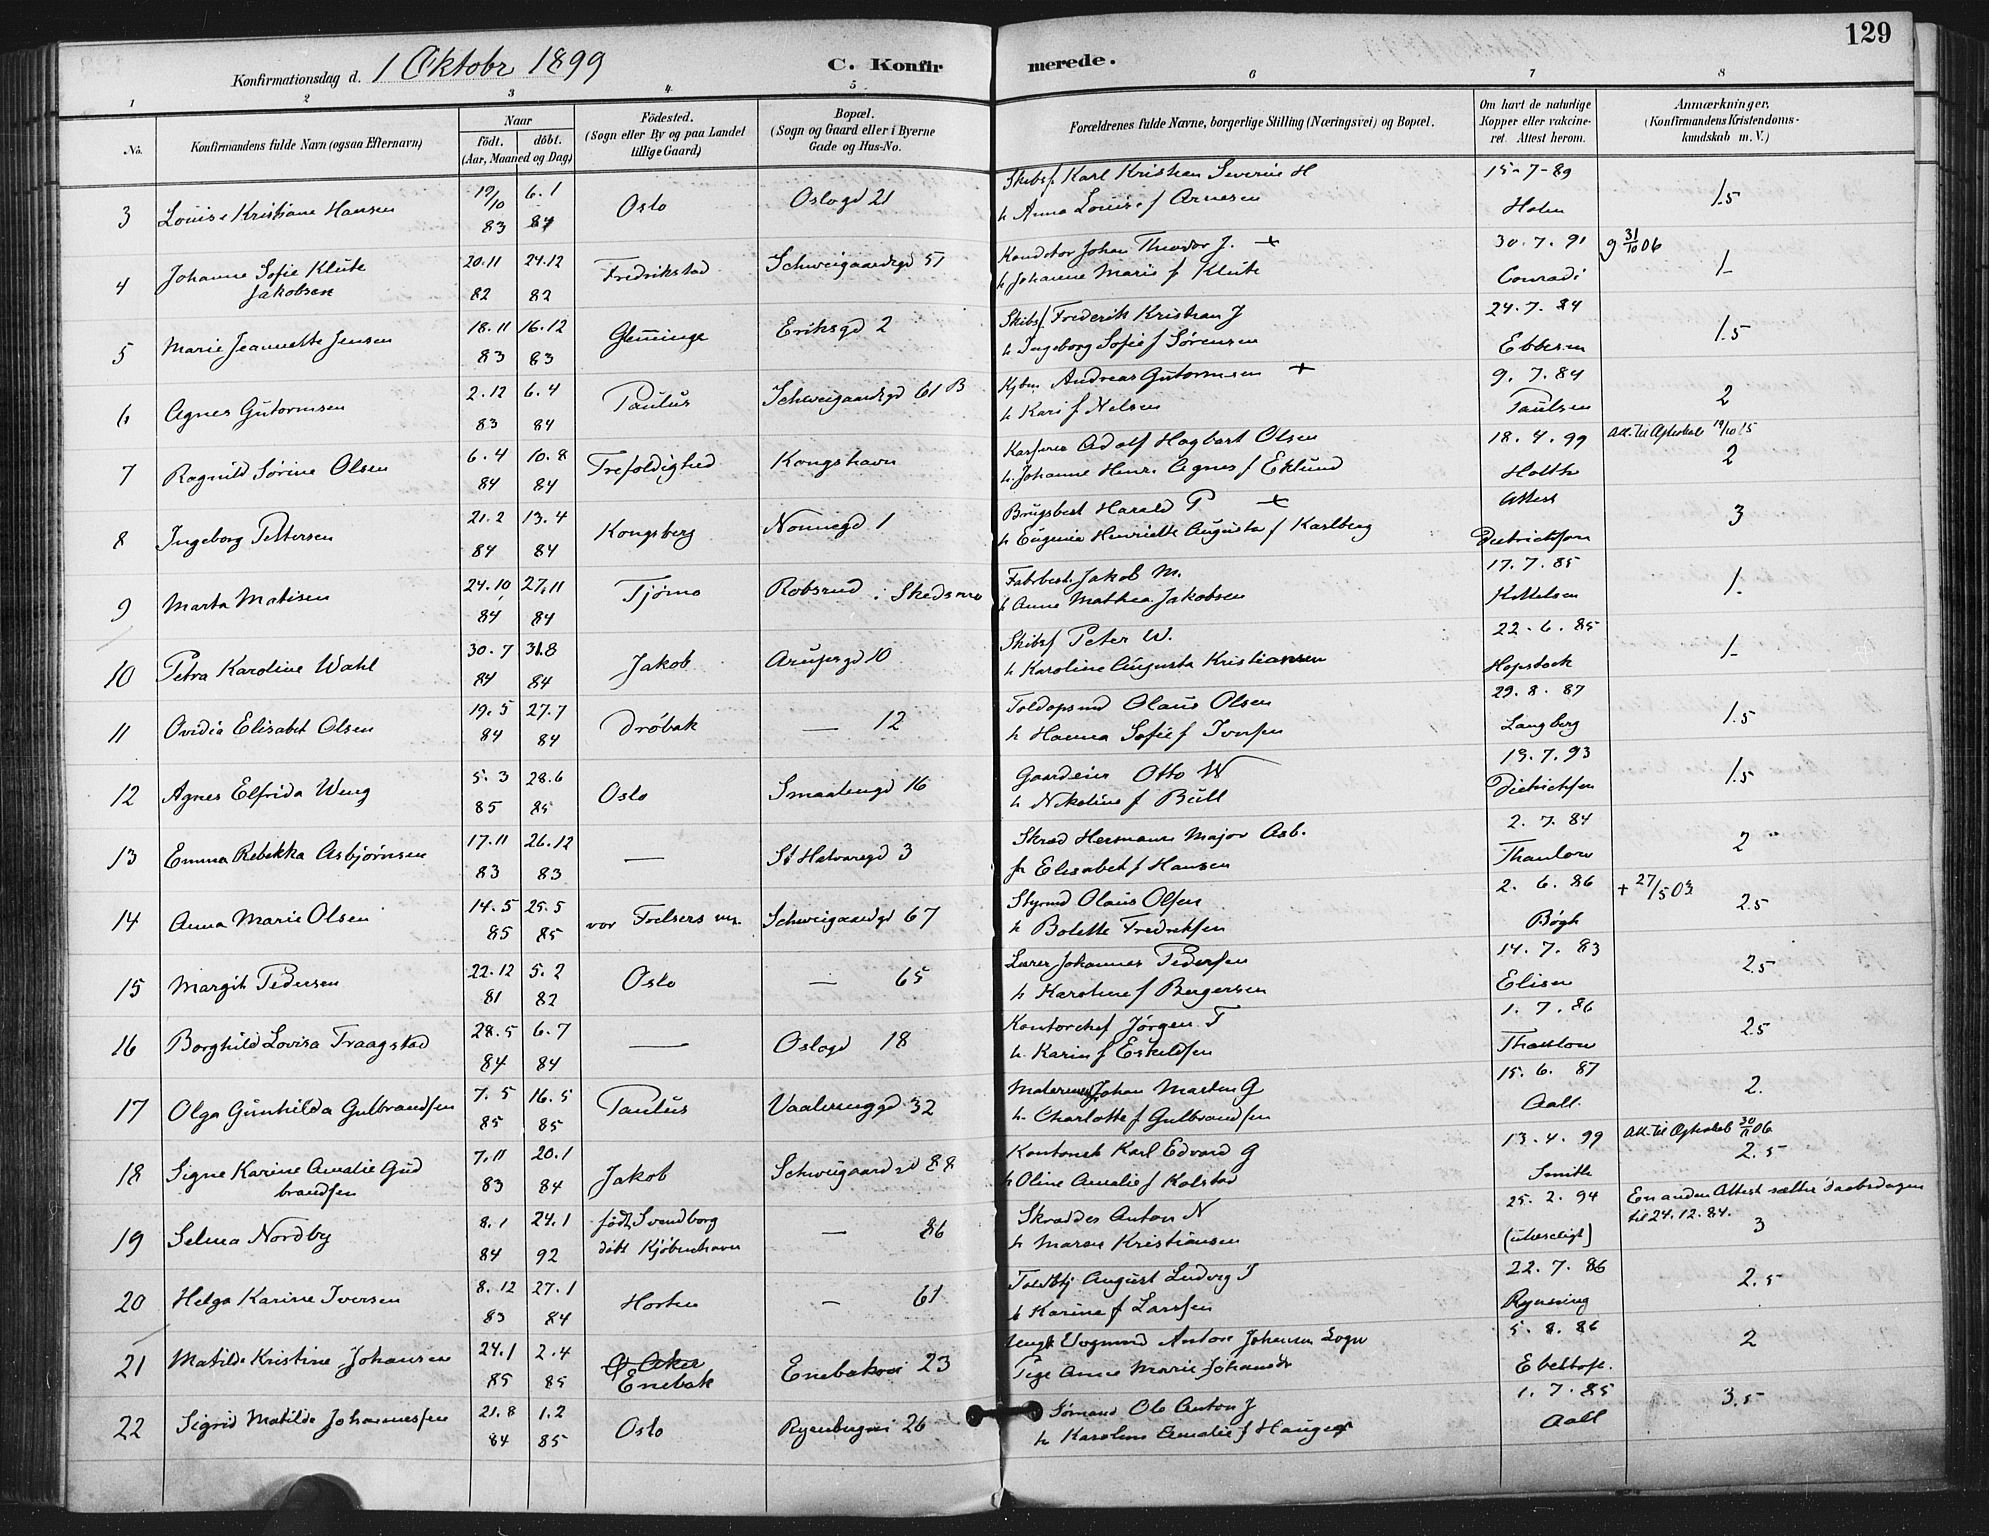 129
Konfirmationsdag d. 1 Oktobr 1899 C. Konfir merede.
1 2 3 4. 5 6 7 8
No. Konfirmandens fulde Navn (ogsaa Efternavn) Naar født. døbt. (Aar, Maaned og Dag) Fødested. (Sogn eller By og paa Landet tillige Gaard) Bopæl. (Sogn og Gaard eller i Byerne Gade og Hus-No. Forældrenes fulde Navne, borgerlige Stilling (Næringsvei) og Bopæl. Om havt de naturlige Kopper eller vakcineret. Attest herom. Anmærkninger, (Konfirmandens Kristendomskundskab m. V.)
3 Louise Kristiane Hansen 17/10 83 6.1 84 Oslo Oslogd 21 Skibsf Karl Kristian Severin H 15-7-89 1.5
h Anna Louise f Arnesen Holm
4 Johanne Sofie Klute Jakobsen 20.11 82 24.12 82 Fredrikstad Schweigaardsgd 51 Konduktor Johan Theodor J. + 30.7.91 g 31/10 06
h Johanne Marie f Klute Conradi 1-
5 Marie Jeannette Jensen 18.11 83 16.12 83 Glemminge Eriksgd 2 Skibsf. Frederik Kristian J 24.7.84 1.5
h Ingeborg Sofie f Sørensen Ebbesen
6 Agnes Gutormsen 2.12 83 6.4 84 Paulus Schweigaardsgd 61 B Kjbm. Andreas Gutormsen + 9.7.84 2
h Kari f Nelsen Paulsen
7 Ragnild Sørine Olsen 6.4 84 10.8 84 Trefoldighed Kongshavn Adolf Hagbart Olsen 18.4.99 Att. til 19/10 15
h. Johanne Henr. Agnes f Eklund Holth 2
8 Ingeborg Pettersen 21.2 84 13.4 84 Kongsberg Nonnegd 1 Brugsbest Harald P + Attest 3
h Eugenia Henriette Augusta f Karlberg Dietrichson
9 Marta Matisen 24.10 84 27.11 84 Tjømø Robsrud i Skedsmo Fabrbest. Jakob M. 17.7.85 1.
h Anne Mathea Jakobsen Kittelsen
10 Petra Karoline Wahl 30.7 84 31.8 84 Jakob Arupsgd 10 Skibsf Peter W. 22.6.85 1-
h Karoline Augusta Kristiansen Hopstock
11 Ovidia Elisabet Olsen 19.5 84 27.7 84 Drøbak — 12 Toldopsmd Olaus Olsen 29.8.87 1.5
h Hanna Sofie f Iversen Langberg
12 Agnes Elfrida Weng 5.3 85 28.6 85 Oslo Smaalengd 16 Gaardeier Otto W 13.7.93 1.5
h Nikoline f Bull Dietrichsen
13 Emma Rebekka Asbjørnsen 17.11 83 26.12 83 — St Halvarsgd 3 Skræd Hermann Major Asb. 2.7.84 2
h Elisabet f Hansen Thaulow
14 Anna Marie Olsen 14.5 85 25.5 85 vor Frelsers Schweigaardgd 67 Styrmd Olaus Olsen 2.6.86 + 27/5 03
h Bolette Fredriksen Bøgh 2.5
15 Margit Pedersen 22.12 81 5.2 82 Oslo — 65 Lærer Johannes Pedersen 14.7.83 2.5
h Karoline f Bergersen Elisen
16 Borghild Lovisa Fraagstad 28.5 84 6.7 84 — Oslogd 18 Kontorchef Jørgen F 1.7.86 2.5
h. Karin f Eskildsen Thaulow
17 Olga Gunhilda Gulbrandsen 7.5 85 16.5 85 Paulus Vaalerenggd 32 Johan Martin G 15.6.87 2.
h. Charlotte f Gulbrandsen Aall.
18 Signe Karine Amalie Gudbrandsen 7.11 83 20.1 84 Jakob Schweigaardsgd 88 Kontorist Karl Edvard G 13.4.99 Att. til 30/11 06
h Oline Amalie f Kolstad Smith 2.5
19 Selma Nordby 8.1 84 24.1 92 født Svendborg døbt Kjøbenhavn — 86 Skrædder Anton N 25.2.94 En anden Attest sætter daabsdagen til 24.12.84. 3
h Maren Kristiansen (ulæseligt)
20 Helga Karine Iversen 8.12 83 27.1 84 Horten — 61 Toldbtj August Ludvig I 22.7.86 2.5
h Karine f Larssen Rynning
21 Matilde Kristine Johansen 24.1 85 2.4 85 Ø Aker Enebak Enebakvei 23 Ungk Vognmd Anton Johansen Sogn 5.8.86 2
Pige Anne Marie Johansdr
22 Sigrid Matilde Johannessen 21.8 84 1.2 85 Oslo Ryenbergvei 26 Sømand Ole Anton J 1.7.85 3.5
h Karoline Amalie f Hauger Aall